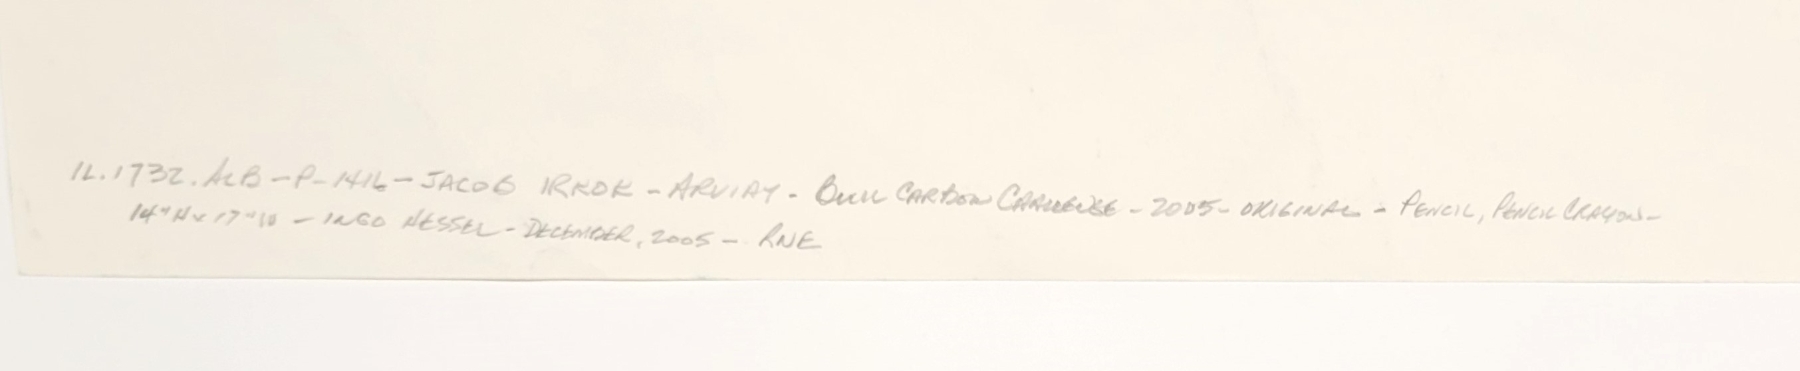 IL.1732.ALB-P-1416-JACOB IRKOK - ARVIAT - BULL CARIBOU - 2005 - ORIGINAL - PENCIL, PENCIL CRAYON -
14"H x 17"W - INGO HESSEL - DECEMBER, 2005 - RNE